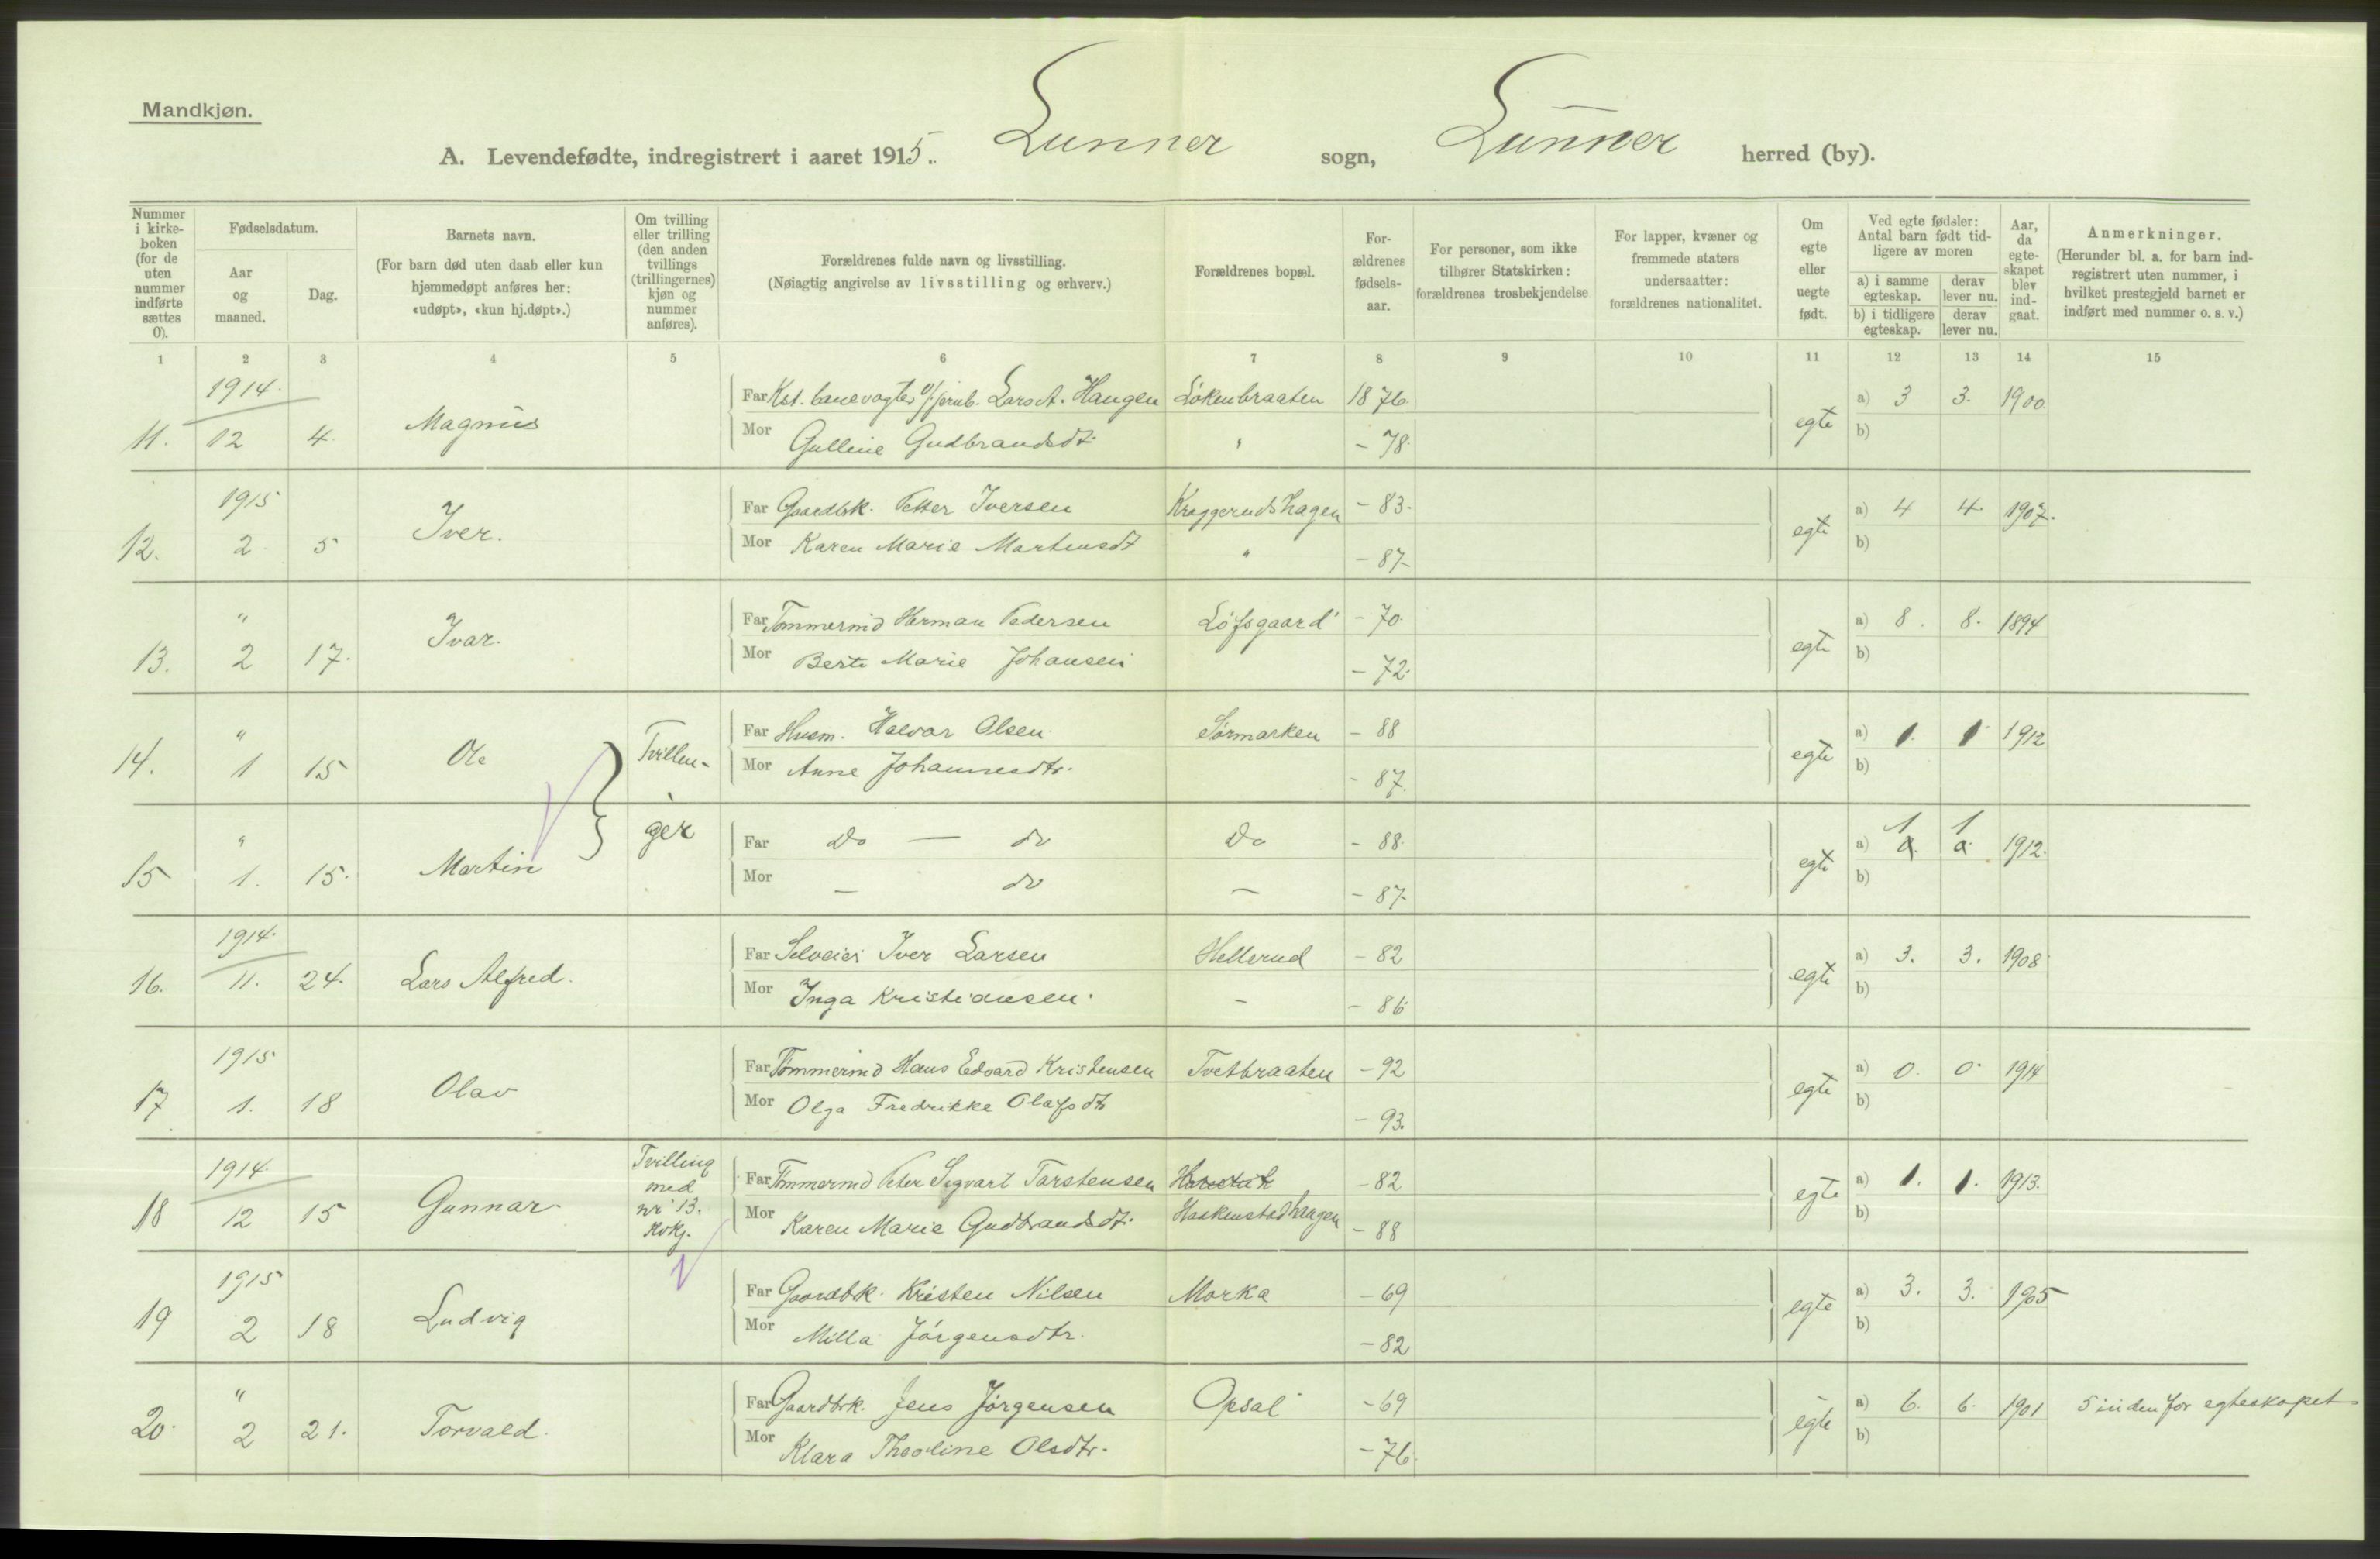 Mandkjøn.
A. Levendefødte, indregistrert i aaret 1915. Lunner sogn, Lunner herred (by).
Nummer i kirke-boken (for de uten nummer indførte sættes 0).
Fødselsdatum.
Aar og maaned.
Dag.
Barnets navn.
(For barn død uten daab eller kun hjemmedøpt anføres her: «udøpt», «kun hj.døpt».)
Om tvilling eller trilling (den anden tvillings (trillingernes) kjøn og nummer anføres).
Forældrenes fulde navn og livsstilling.
(Nøiagtig angivelse av livsstilling og erhverv.)
Forældrenes bopæl.
For-ældrenes fødsels-aar.
For personer, som ikke tilhører Statskirken: forældrenes trosbekjendelse
For lapper, kvæner og fremmede staters undersaatter: forældrenes nationalitet.
Om egte eller uegte født.
Ved egte fødsler: Antal barn født tid-ligere av moren
a) i samme egteskap.
derav lever nu.
b) i tidligere egteskap.
derav lever nu.
Aar, da egte-skapet blev ind-gaat.
Anmerkninger.
(Herunder bl. a. for barn ind-registrert uten nummer, i hvilket prestegjeld barnet er indført med nummer o. s. v.)
1 2 3 4 5 6 7 8 9 10 11 12 13 14 15
1914.
Far Kst. banevogter v/jernb. Lars A. Haugen Løkenbraaten 1876. a) 3 3. 1900.
11. 12 4. Magnus egte
Mor Gulline Gudbrandsdt. " - 78. b)
1915
Far Gaardbk. Petter Iversen Kraggerudshagen - 83. a) 4 4. 1907.
12. 2. 5 Iver. egte
Mor Karen Marie Martensdt " - 87- b)
"
Far Tømmermd Herman Pedersen Løfsgaard - 70. a) 8. 8. 1894
13. 2 17. Ivar. egte
Mor Berte Marie Johansen - 72. b)
"
Far Husm. Halvor Olsen. Sørmarken - 88 a) 1. 1 1912
14. 1 15 Ole Tvillin- egte
Mor Anne Johannesdtr. - 87. b)
"
ger Far Do — do Do - 88. a) 1 1 1912.
15 1. 15. Martin egte
Mor — do — - 87- b)
1914.
Far Selveier Iver Larsen Hellerud - 82 a) 3. 3. 1908
16. 11. 24. Lars Alfred. egte
Mor Inga Kristiansen. — - 86 b)
1915
Far Tømmermd Hans Edvard Kristensen Tvetbraaten - 92 a) 0. 0. 1914
17 1. 18 Olav egte
Mor Olga Fredrikke Olafsdtr - 93. b)
1914.
Tvilling med nr 13. Kvkj.
Far Tømmermd Peter Sigvart Torstensen - 82 a) 1. 1. 1913.
18 12 15 Gunnar. egte
Mor Karen Marie Gudbrandsdt. Haakenstadhaugen - 88 b)
1915
Far Gaardbk. Kristen Nilsen Morka - 69 a) 3. 3. 1905
19 2 18 Ludvig egte
Mor Milla Jørgensdtr. - 82 b)
"
Far Gaardbrk. Jens Jørgensen Opsal - 69 a) 6. 6. 1901 5 inden for egteskapet
20. 2 21. Torvald. egte
Mor Klara Theoline Olsdtr. - 76. b)